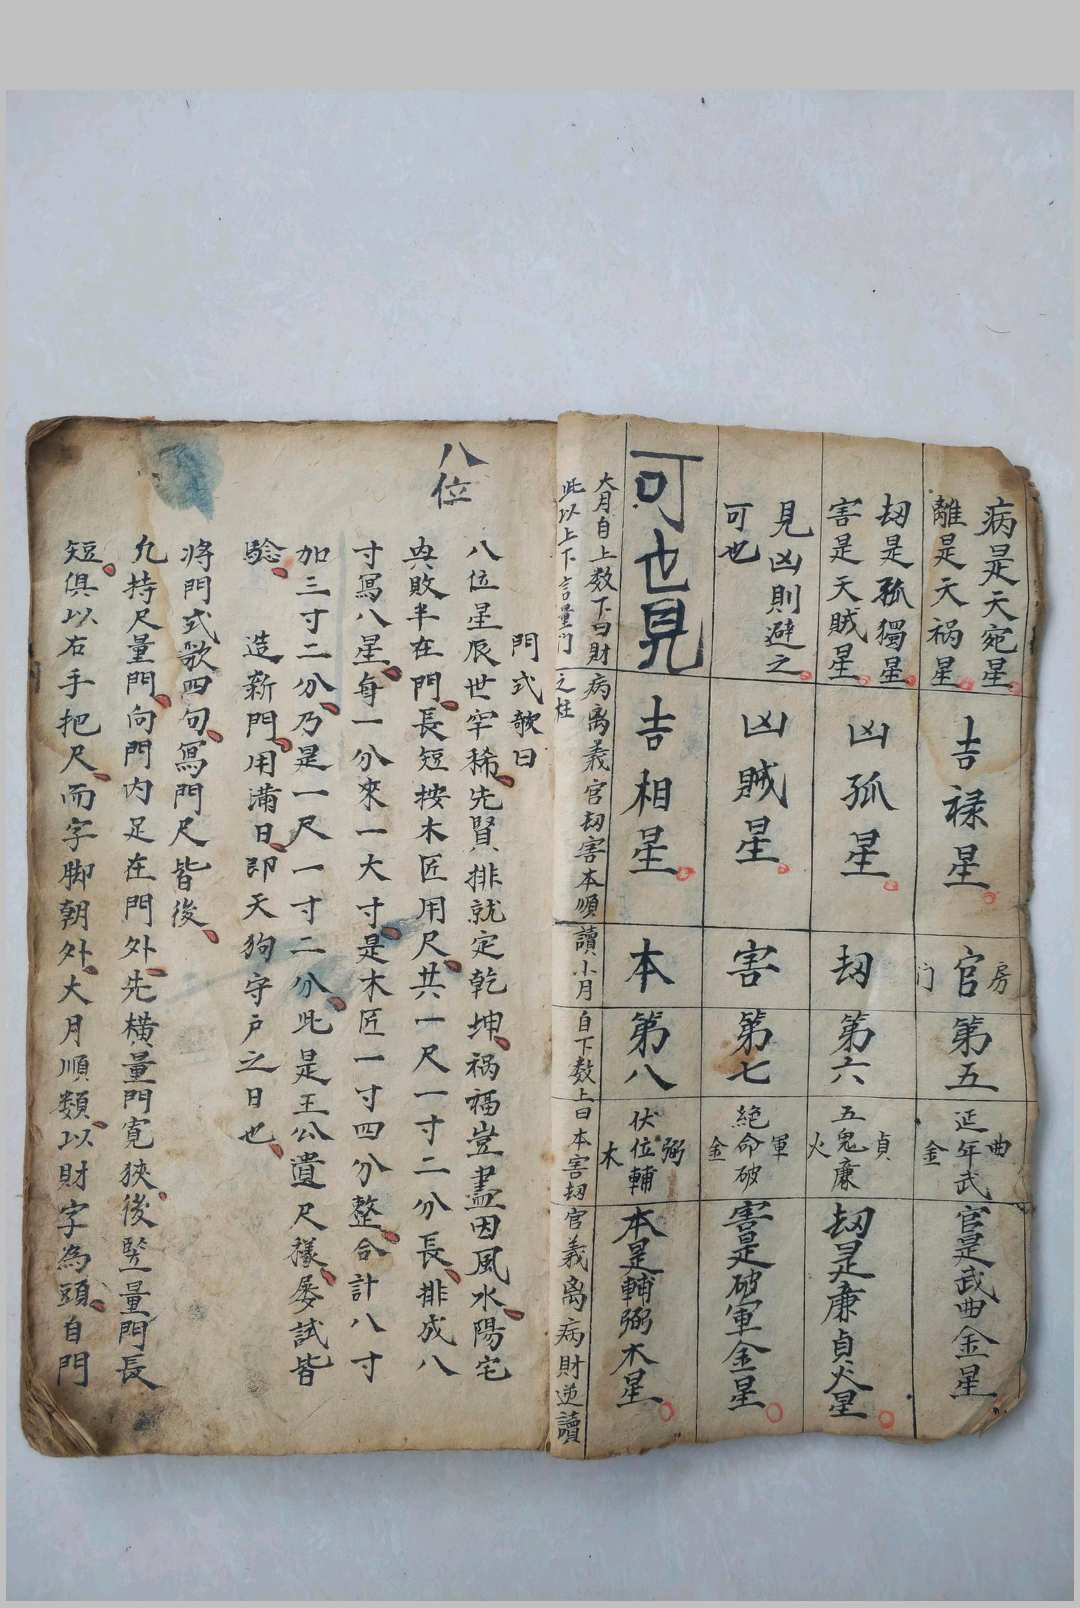 病是天宛星
離是天祸星
吉禄星
房官门
第五
延年武曲金
官是武曲金星
刼是孤獨星
害是天賊星
凶孤星
刼
第六
五鬼廉貞火
刼是廉貞火星
見凶則避之
可也
凶賊星
害
第七
絕命破軍金
害是破軍金星
可也見
吉相星
本
第八
伏位輔弼木
本是輔弼木星
大月自上数下曰財病离義官刼害本順讀小月
自下数上曰本害刼官義离病財逆讀
此以上下言量门之柱
八位
門式歌曰
八位星辰世罕稀先賢排就定乾坤祸福豈盡因風水陽宅
㒷敗半在門長短按木匠用尺共一尺一寸二分長排成八
寸寫八星每一分來一大寸是木匠一寸四分整合計八寸
加三寸二分乃是一尺一寸二分此是王公遺尺樣屡試皆
驗
造新門用滿日即天狗守戶之日也
將門式歌四句寫門尺皆後
允持尺量門向門內足在門外先橫量門寬狹後竪量門長
短俱以右手把尺而字脚朝外大月順類以財字為頭自門